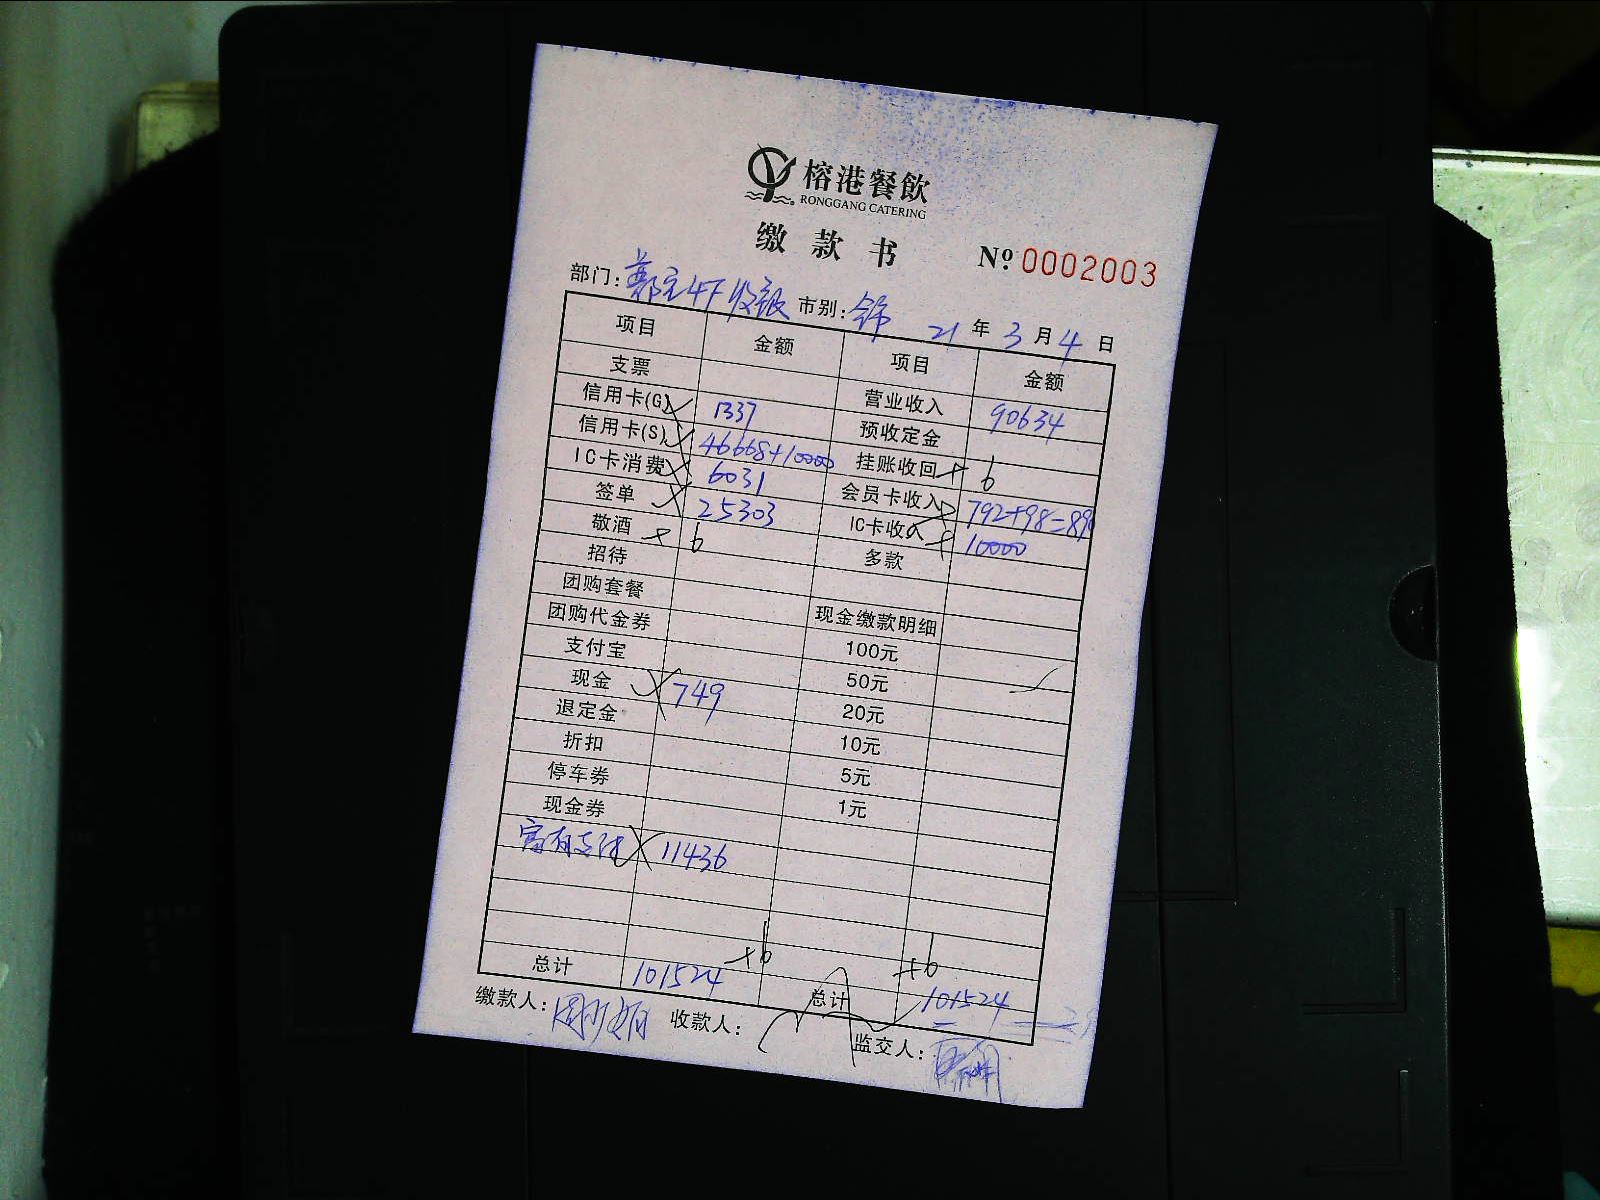 榕港餐飲
RONGGANG CATERING
缴款书 Nº: 0002003
部门: 4F收银 市别: 21年3月4日
项目 金额 项目 金额
支票 营业收入 90634
信用卡(G) 1337 预收定金
信用卡(S) 46668+10000 挂账收回 6
IC卡消费 6031 会员卡收入 792+98=890
签单 25303 IC卡收入 10000
敬酒 6 多款
招待
团购套餐 现金缴款明细
团购代金券 100元
支付宝 50元
现金 749 20元
退定金 10元
折扣 5元
停车券 1元
现金券
富有支付 11436
总计 101524 总计 101524
缴款人: 收款人: 监交人: